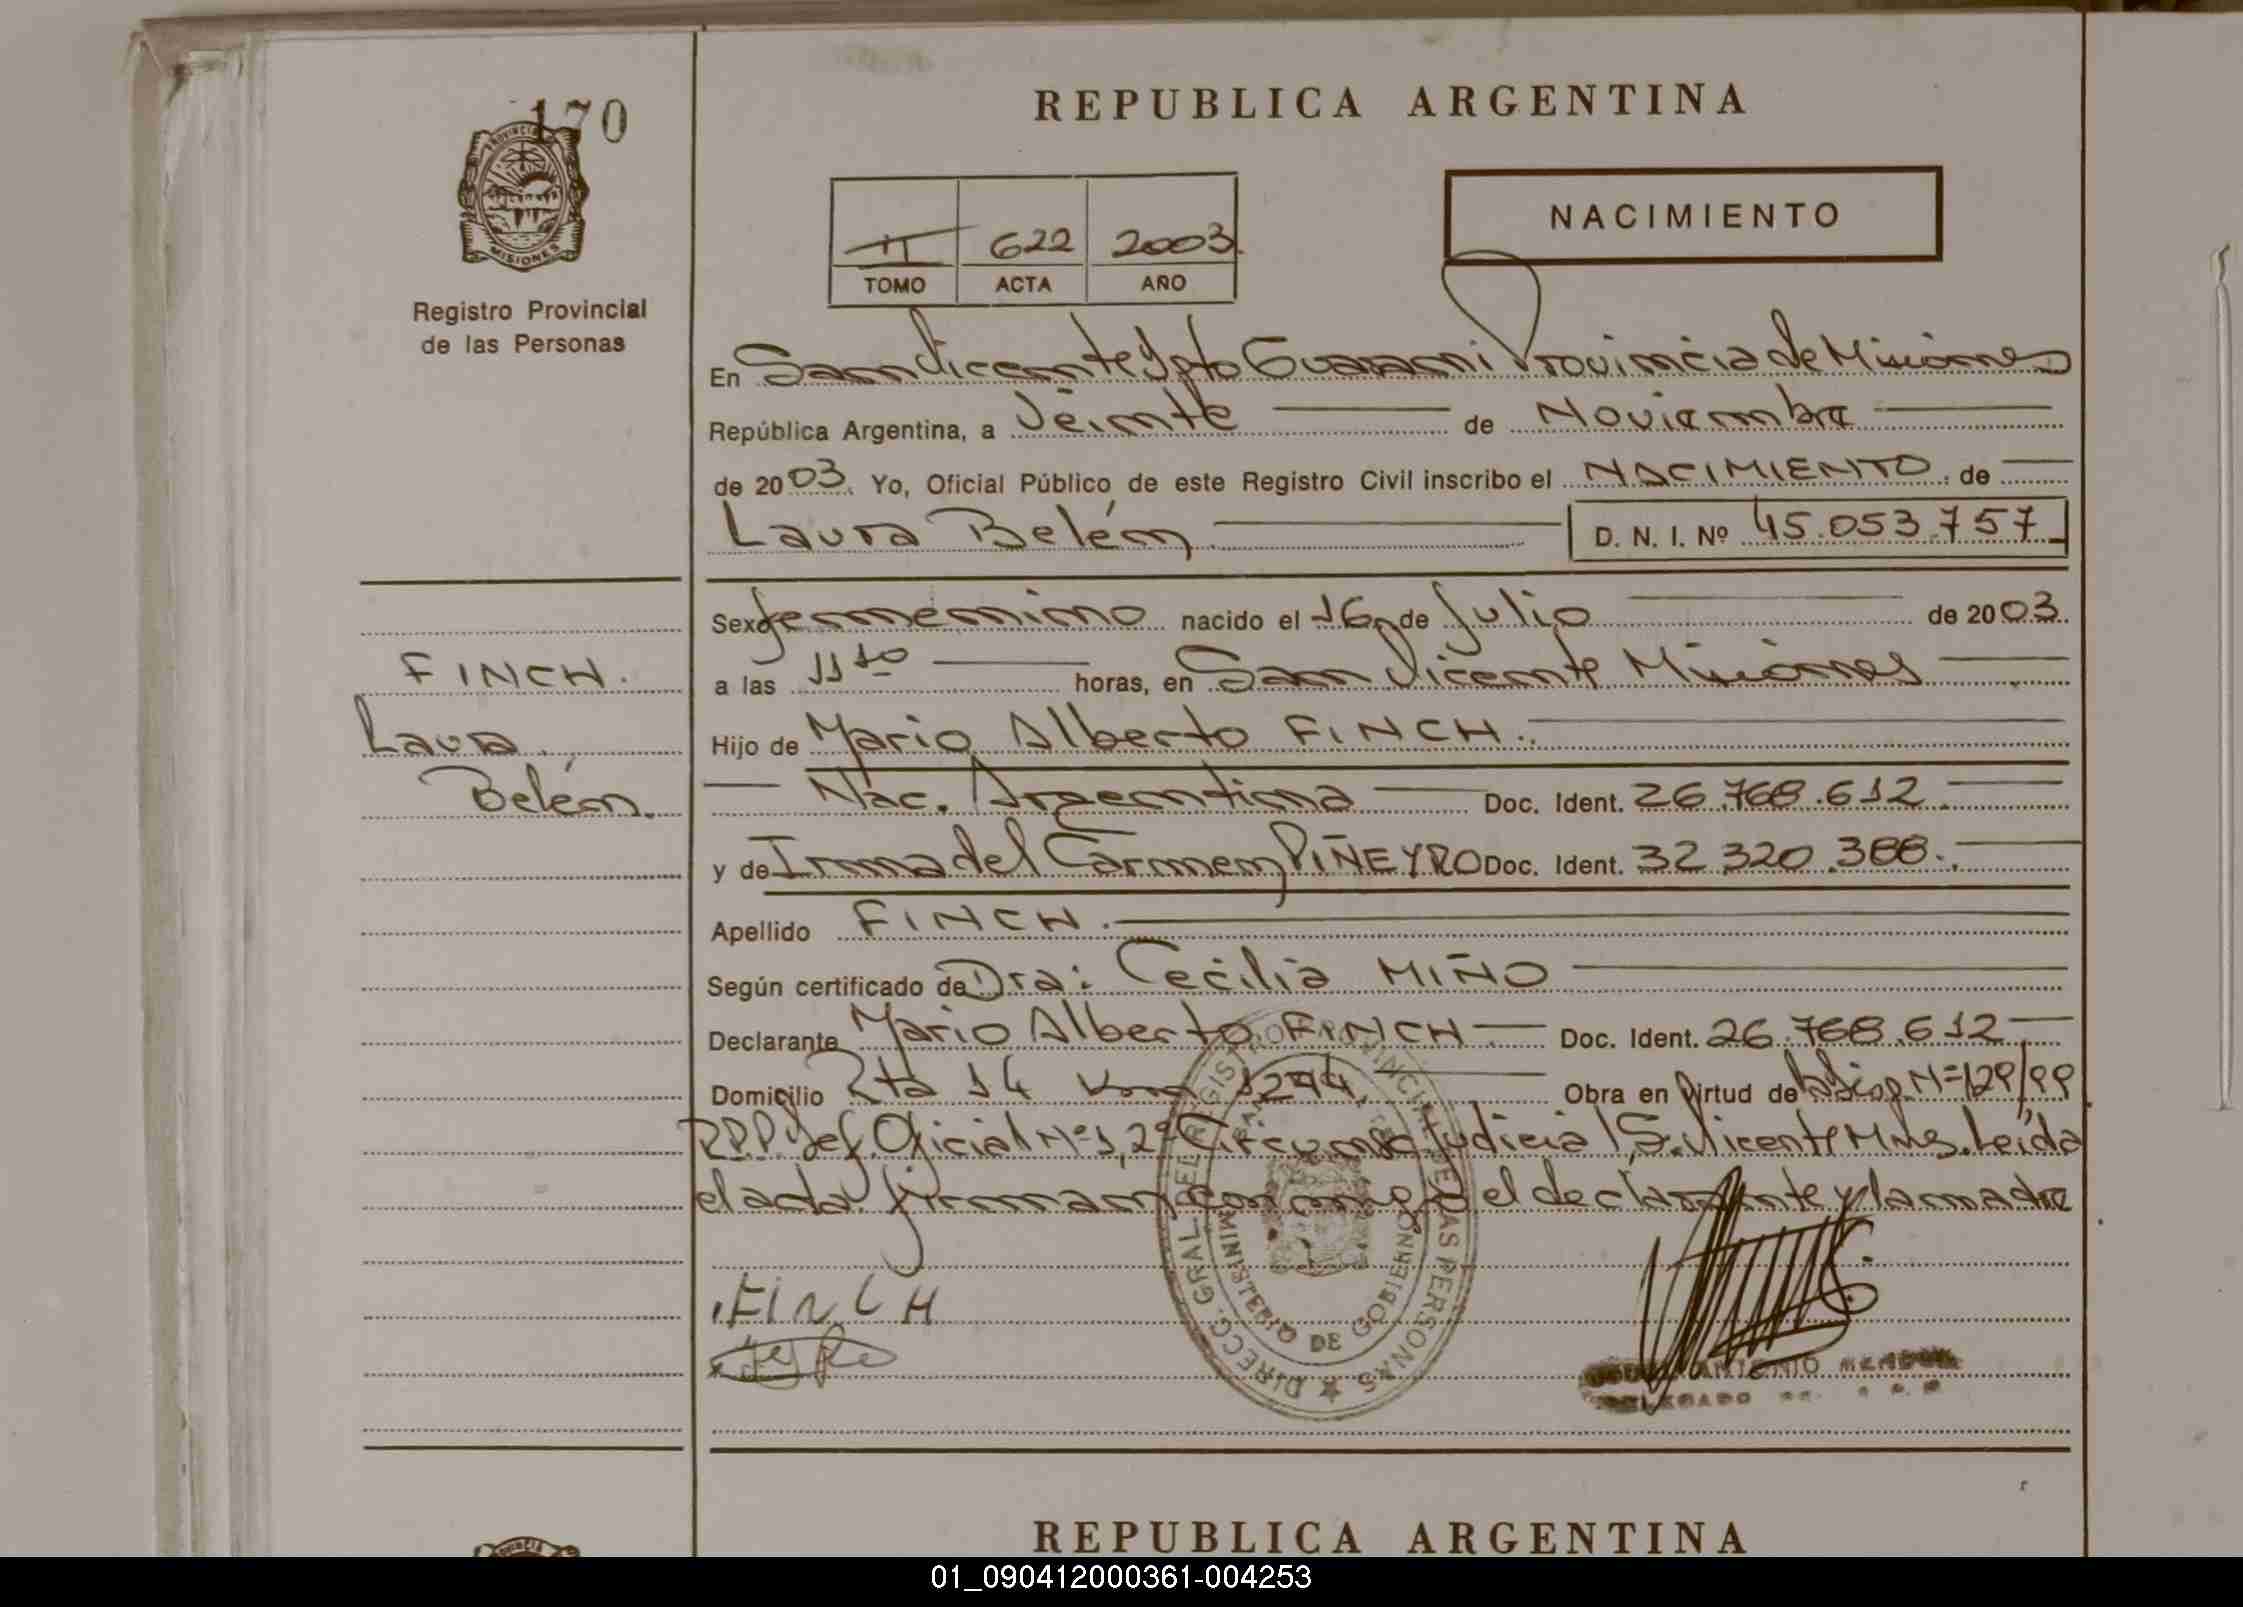 170
PROVINCIA
MISIONES
Registro Provincial
de las Personas
REPUBLICA ARGENTINA
II 622 2003.
TOMO ACTA AÑO
NACIMIENTO
En San Vicente Dpto Guaraní Provincia de Misiones
República Argentina, a Veinte de Noviembre
de 2003. Yo, Oficial Público de este Registro Civil inscribo el NACIMIENTO. de
Laura Belén D. N. I. Nº 45.053.757
Sexo femenino nacido el 16 de Julio de 2003.
a las 11 10 horas, en San Vicente Misiones
FINCH.
Laura
Belén.
Hijo de Mario Alberto FINCH.
Nac. Argentina Doc. Ident. 26.768.612
y de Irma del Carmen PIÑEYRO Doc. Ident. 32.320.388.
Apellido FINCH.
Según certificado de Dra: Cecilia MIÑO
Declarante Mario Alberto FINCH Doc. Ident. 26.768.612
Domicilio Rta 14 Km 1274 Obra en Virtud de Disp. Nº 129/99
R.P.P. y Def. Oficial Nº 1, 2ª Circunsc. Judicial S. Vicente Mnes. Leída
el acta firman conmigo el declarante y la madre
FINCH
DIRECC. GRAL. DEL REGISTRO PROVINCIAL DE LAS PERSONAS
MINISTERIO DE GOBIERNO
ANTONIO
DELEGADO
REPUBLICA ARGENTINA
01_090412000361-004253